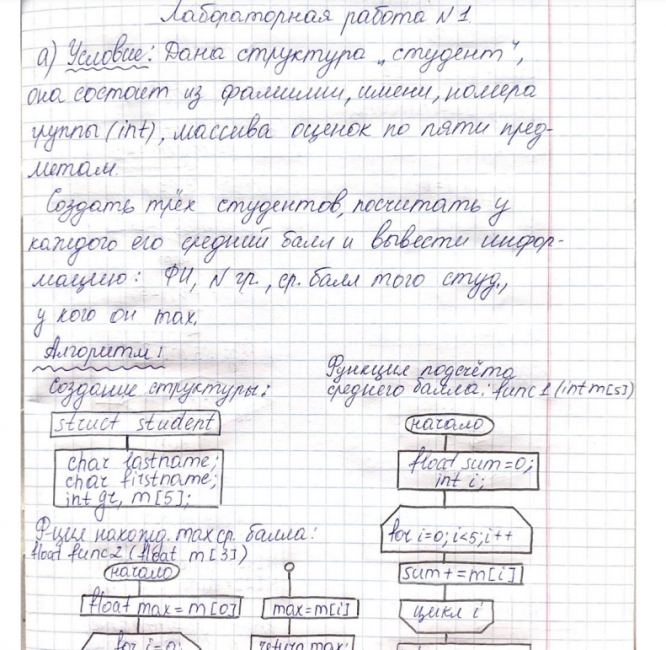 Лабораторная работа N1
а) Условие: Дана структура „студент“,
она состоит из фамилии, имени, номера
группы (int), массива оценок по пяти пред-
метам.
Создать трёх студентов, посчитать у
каждого его средний балл и вывести инфор-
мацию: ФИ, N гр., ср. балл того студ.,
у кого он max.
Алгоритм:
Создание структуры:
struct student
char lastname;
char firstname;
int gr, m[5];
Функция подсчёта
среднего балла: func1 (int m[5])
начало
float sum=0;
int i;
for i=0; i<5; i++
sum+=m[i]
цикл i
Ф-ция нахожд. max ср. балла:
float func2 (float m[3])
начало
float max=m[0]
for i=0;
max=m[i]
return max;